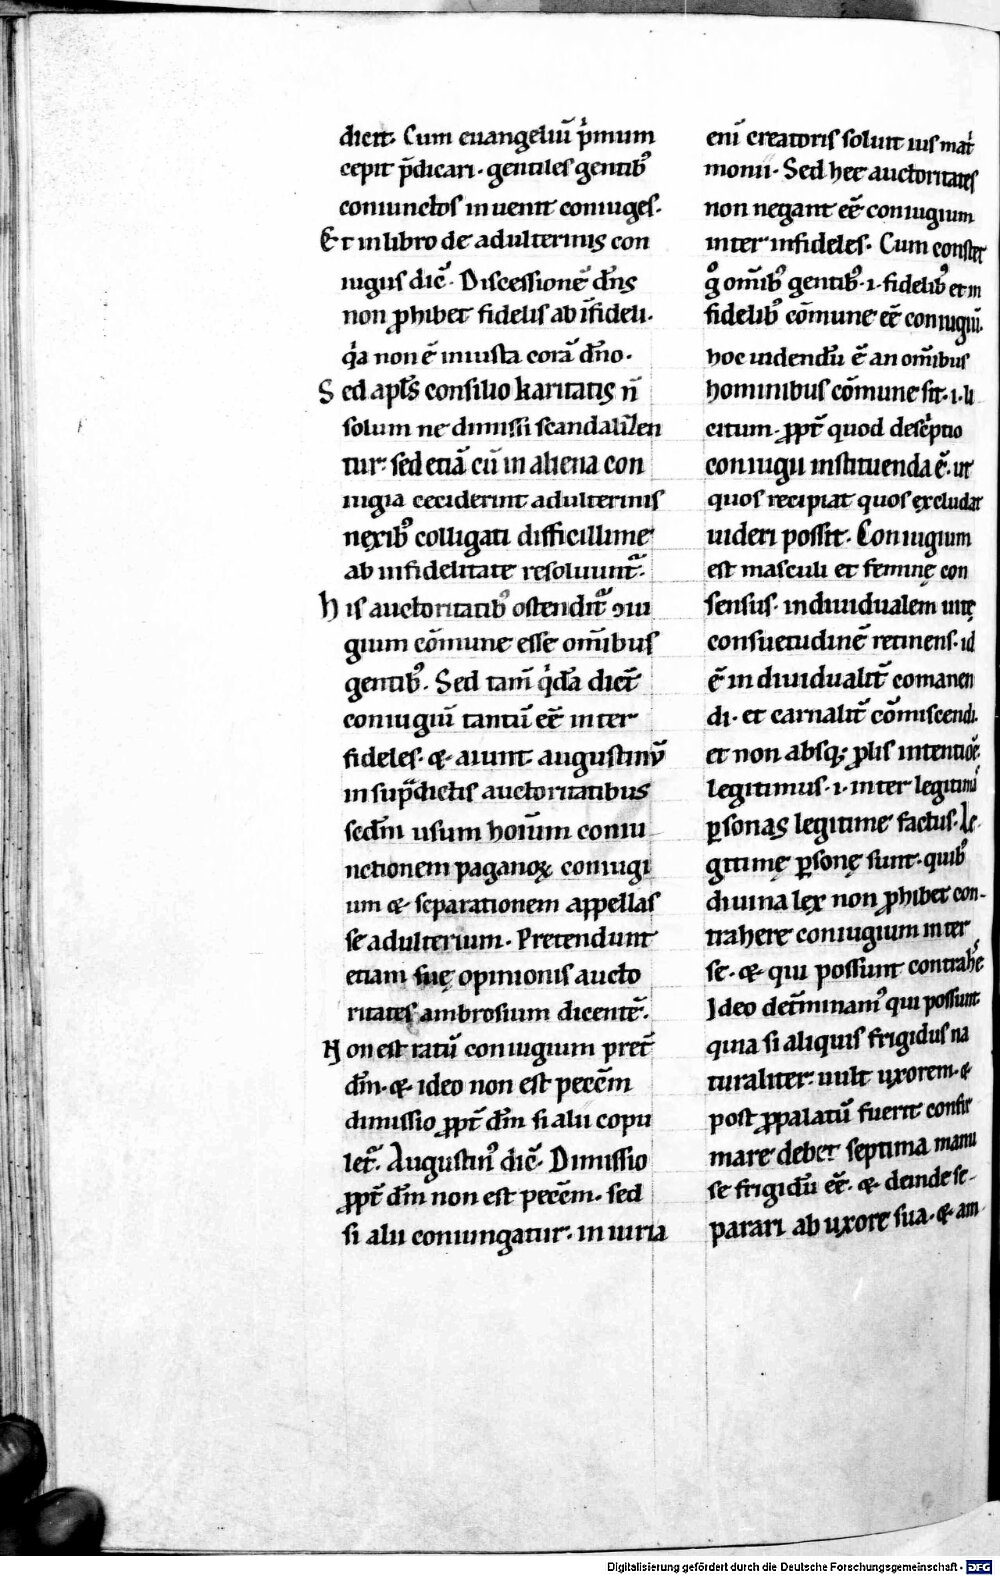 dicit. Cum euangeliū p̾mum
cepit p̄dicari. gentiles gentib᷒
coniunctos inuenit coniuges.
Et in libro de adulterinis con
iugiis dic̄. Discessionē dn̄s
non ꝓhibet fidelis ab īfideli.
q̾a non ē iniusta corā dn̄o.
Sed apl̄s consilio karitatis n̄
solum ne dimissi scandalizen
tur: sed etiā cū in aliena con
iugia ceciderint adulterinis
nexib᷒ colligati difficillime
ab infidelitate resoluunt᷑.
His auctoritatib᷒ ostendit᷑ ꝯiu
gium cōmune esse om̄ibus
gentib᷒. Sed tam̄ q̾dā dicūt
coniugiū tantū eē̄ inter
fideles. ⁊ aiunt augustinū
in sup̄dictis auctoritatibus
sedm̄ usum hoīum coniu
nctionem paganoꝝ coniugi
um ⁊ separationem appellas
se adulterium. Pretendunt
etiam suę opinionis aucto
ritates ambrosium dicentē.
Non est ratū coniugium pret̄
dm̄. ⁊ ideo non est pecc̄m
dimissio ꝓpt̄ dm̄ si alii copu
let᷑. Augustin᷒ dic̄. Dimissio
ꝓpt̄ dm̄ non est pecc̄m. sed
si alii coniungatur. iniuria
eni creatoris soluit ius mat̾
monii. Sed hee auctoritates
non negant eē̄ coniugium
inter infideles. Cum constet
g̊ om̄ib᷒ gentib᷒ .i. fidelib᷒ et in
fidelib᷒ cōmune eē̄ coniugiū.
hoc uidendū ē an om̄ibus
hominibus cōmune sit .i. li
citum. ꝓpt̄ quod desc̾ptio
coniugii instituenda ē. ut
quos recipiat quos excludat
uideri possit. Coniugium
est masculi et feminę con
sensus. indiuidualem uitę
consuetudinē retinens. id
ē indiuidualit̄ comanen
di. et carnalit̄ cōmiscendi.
et non absq; ꝓlis intentiōe.
legitimus .i. inter legitimas
ꝑsonas legitime factus. Le-
gitimę ꝑsonę sunt. quib᷒
diuina lex non ꝓhibet con-
trahere coniugium inter
se. ⁊ qui possunt contrah̄e
Ideo det̄minam᷒ qui possunt
quia si aliquis frigidus na
turaliter: uult uxorem. ⁊
post ꝓpalatū fuerit confir
mare debet septima manu
se frigidū eē̄. ⁊ deinde se-
parari ab uxore sua. ⁊ am-
Digitalisierung gefördert durch die Deutsche Forschungsgemeinschaft - DFG